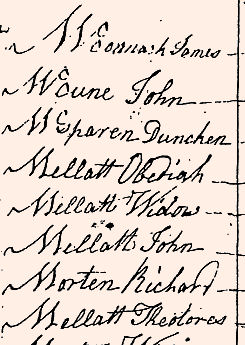 McConnach James
McCune John
McSparen Dunchen
Mellatt Obediah
Mellatt Widow
Mellatt John
Morten Richard
Mellatt Theotores